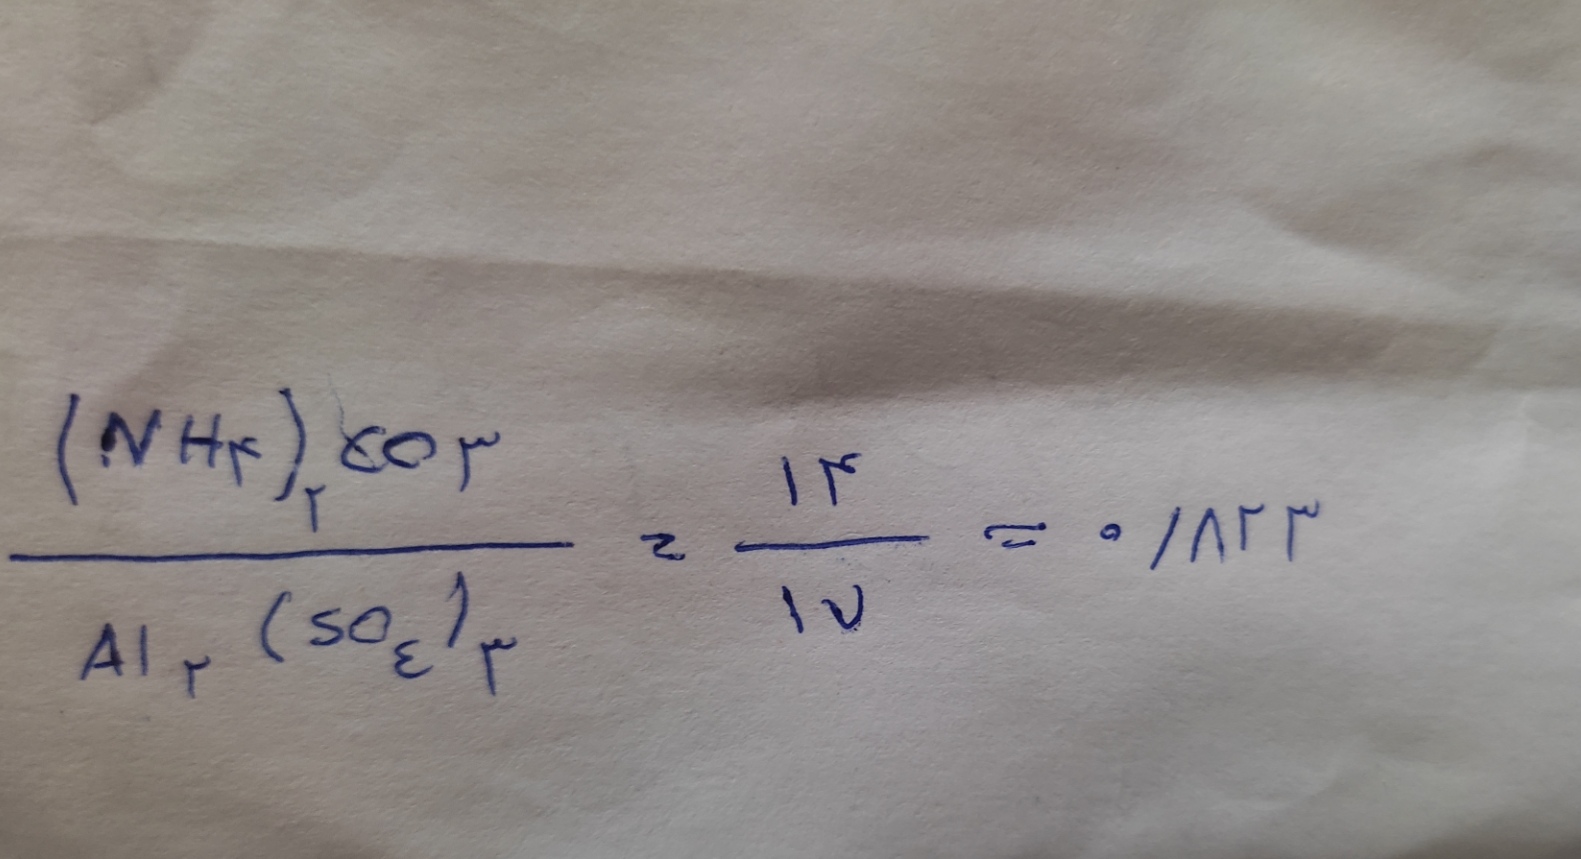 (NH۴)۲CO۳ / Al۲(SO٤)۳ = ۱۴ / ۱۷ ≈ ۰/۸۲۳